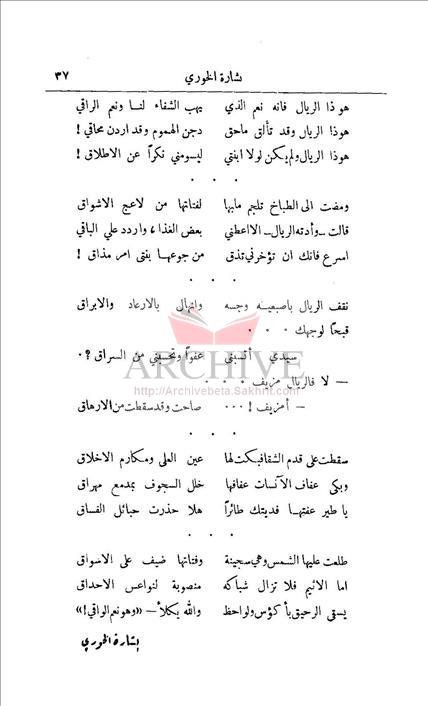 بشارة الخوري ٣٧
هو ذا الريال فانه نعم الذي يهب الشفاء لنا ونعم الراقي
هوذا الريال وقد تألق ماحق دجن الهموم وقد اردن محاقي !
هوذا الريال ولم يكن لولا ابنتي ليسومني نكراً عن الاطلاق !
. . .
ومضت الى الطباخ تلجم مابها لفتاتها من لاعج الاشواق
قالت _ وأدته الريال _ الا اعطني بعض الغذاء واردد علي الباقي
اسرع فانك ان تؤخرني تذق من جوعها بفتى امر مذاق !
. . .
نقف الريال باصبعيه وجسه وانهال بالارعاد والابراق
قبحاً لوجهك . . .
سيدي أتسبني عفواً وتحسبني من السراق ؟ .
ARCHIVE
http://Archivebeta.Sakhrit.com
— لا فالريال مزيف . . . .
— أمزيف ! . . . صاحت وقد سقطت من الارهاق
. . .
سقطت على قدم الشقا فبكت لها عين العلى ومكارم الاخلاق
وبكى عفاف الآنسات عفافها خلل السجوف بمدمع مهراق
يا طير عفتها فديتك طائراً هلا حذرت حبائل الفساق
. . .
طلعت عليها الشمس وهي سجينة وفتاتها ضيف على الاسواق
اما الاثيم فلا تزال شباكه منصوبة لنواعس الاحداق
يسقى الرحيق بأكؤس ولواحظ والله يكلأ — «وهو نعم الواقي !»
بشارة الخوري